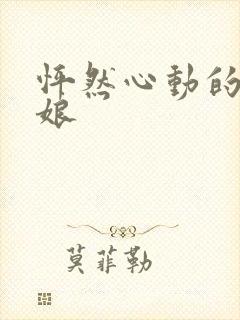 怦然心動的
娘
莫菲勒